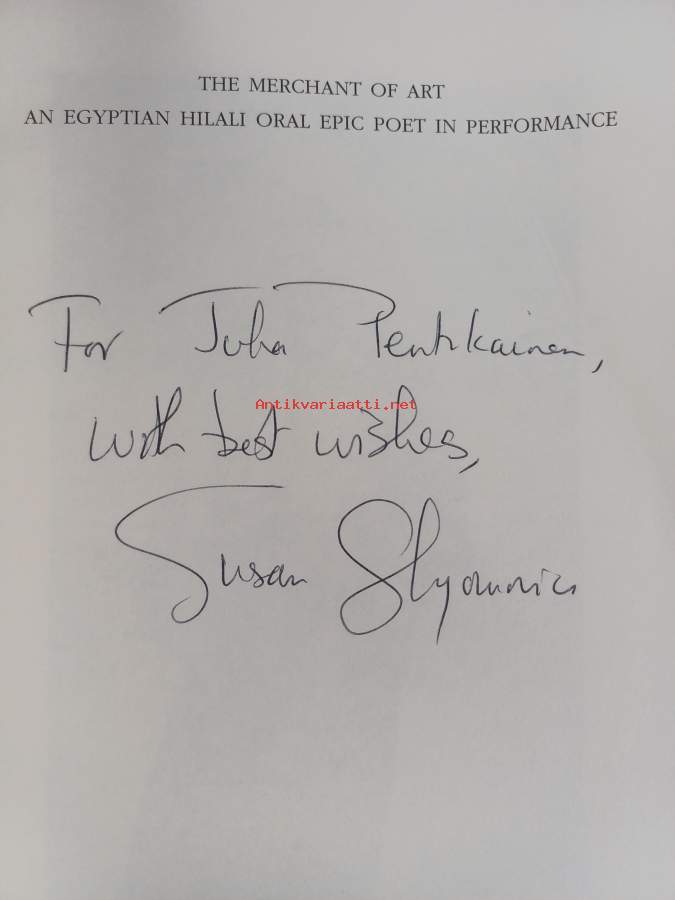 THE MERCHANT OF ART
AN EGYPTIAN HILALI ORAL EPIC POET IN PERFORMANCE
For Juha Pentikainen,
Antikvariaatti.net
with best wishes,
Susan Slyomovics